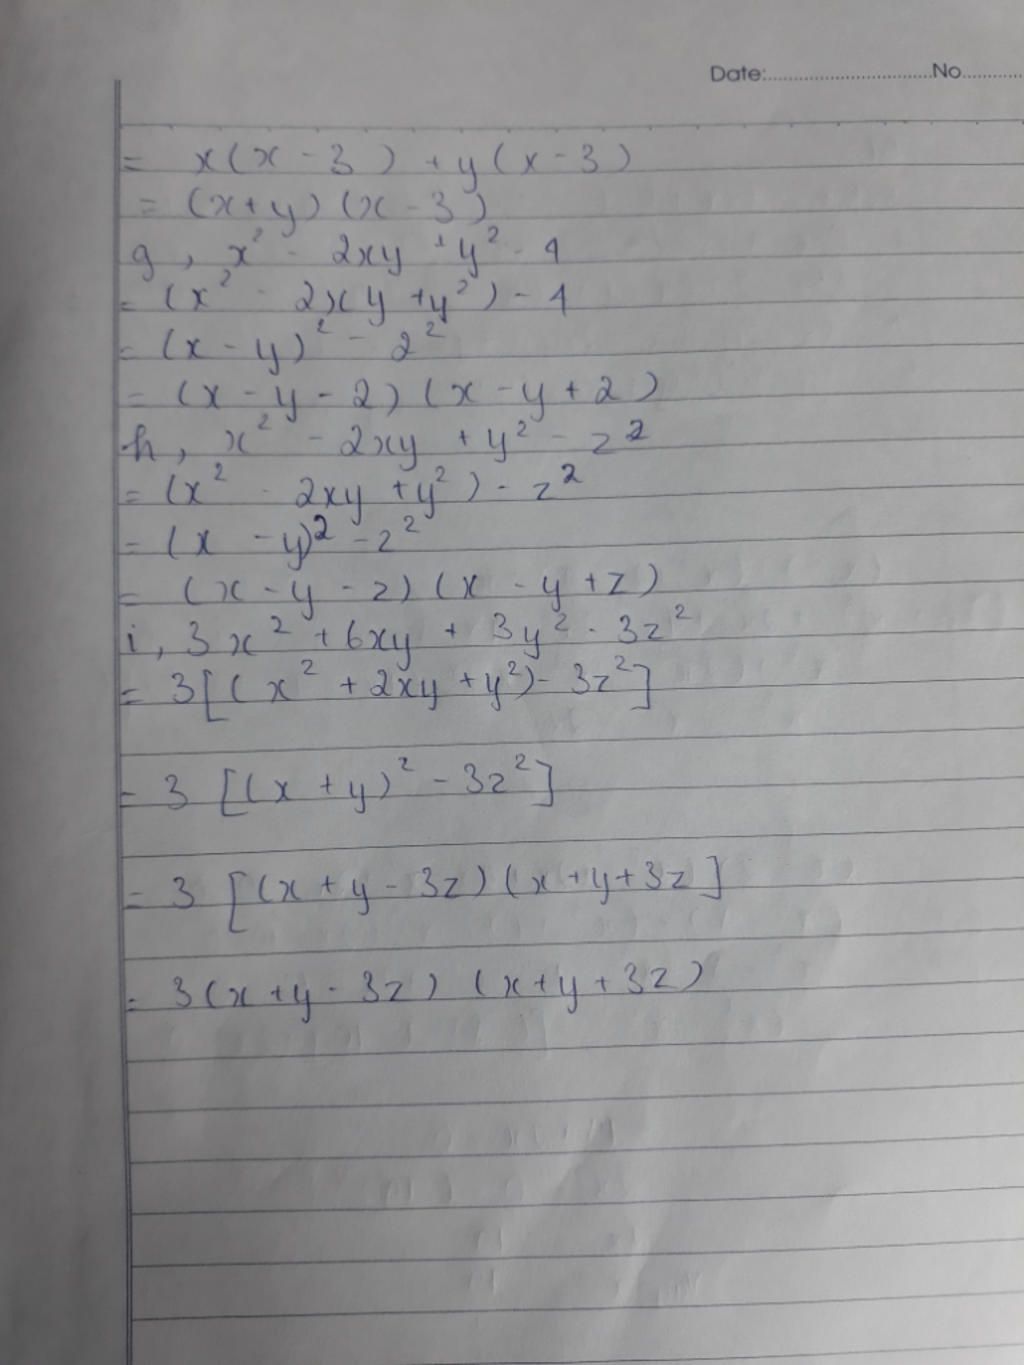 Date:..............................No...........
= x(x - 3) + y(x - 3)
= (x+y) (x - 3)
g, x² - 2xy + y² - 4
= (x² - 2xy + y²) - 4
= (x - y)² - 2²
= (x - y - 2) (x - y + 2)
h, x² - 2xy + y² - z²
= (x² - 2xy + y²) - z²
= (x - y)² - z²
= (x - y - z) (x - y + z)
i, 3x² + 6xy + 3y² - 3z²
= 3[(x² + 2xy + y²) - 3z²]
= 3 [(x + y)² - 3z²]
= 3 [(x + y - 3z) (x + y + 3z]
= 3(x + y - 3z) (x + y + 3z)